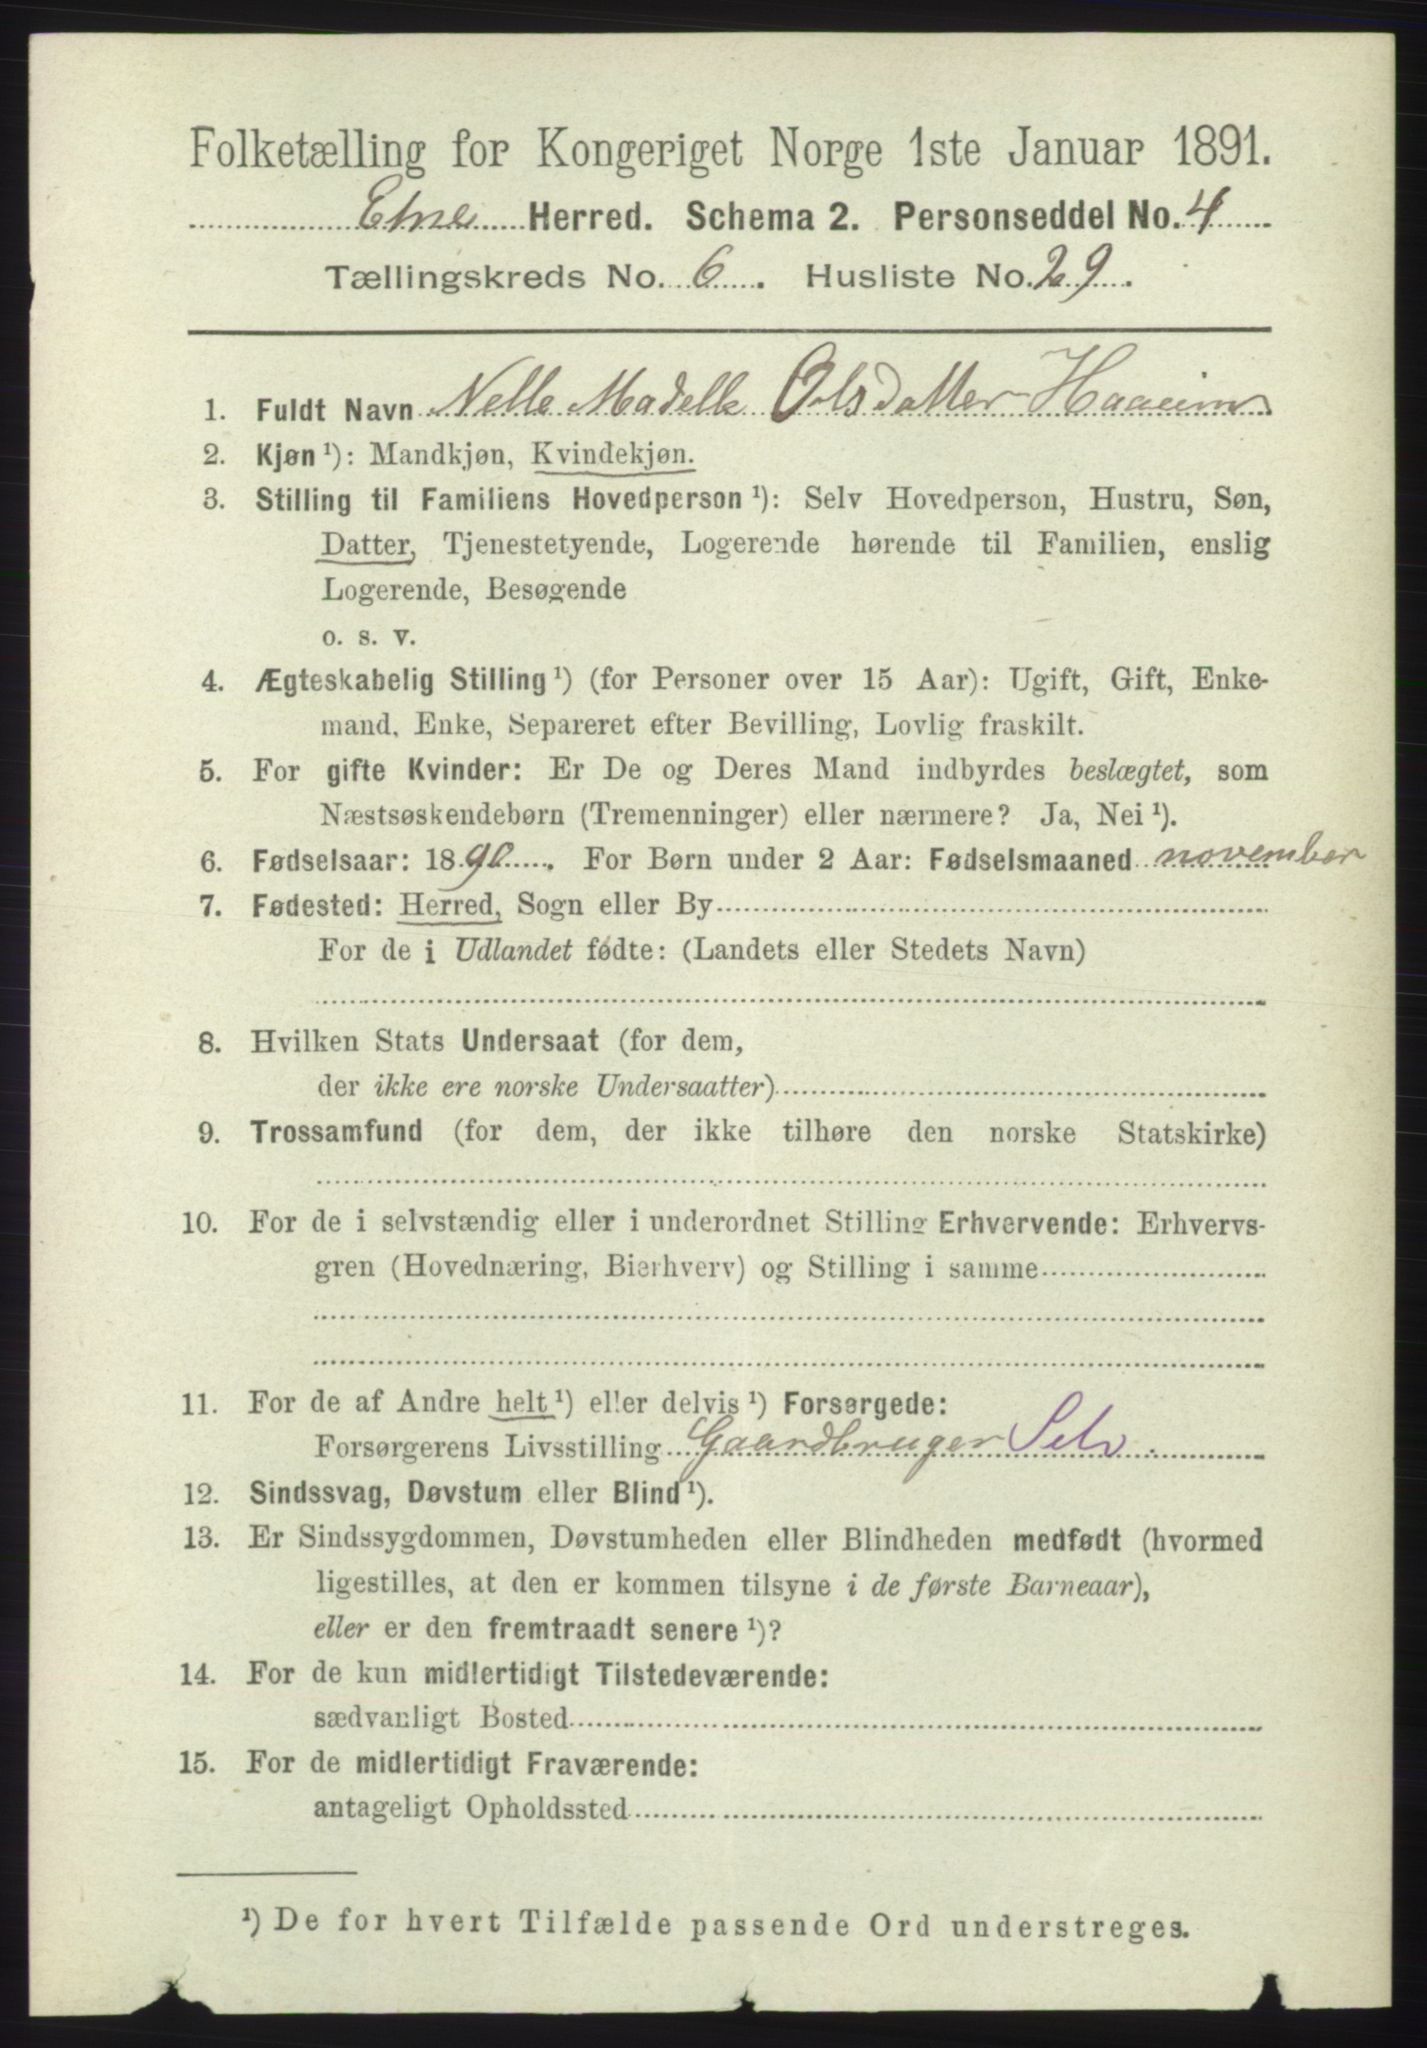 Folketælling for Kongeriget Norge 1ste Januar 1891.
Etne Herred. Schema 2. Personseddel No. 4
Tællingskreds No. 6. Husliste No. 29.
1. Fuldt Navn Nelle Madelle Olsdatter Haaeim
2. Kjøn ¹): Mandkjøn, Kvindekjøn.
3. Stilling til Familiens Hovedperson ¹): Selv Hovedperson, Hustru, Søn,
Datter, Tjenestetyende, Logerende hørende til Familien, enslig
Logerende, Besøgende
o. s. v.
4. Ægteskabelig Stilling ¹) (for Personer over 15 Aar): Ugift, Gift, Enke-
mand, Enke, Separeret efter Bevilling, Lovlig fraskilt.
5. For gifte Kvinder: Er De og Deres Mand indbyrdes beslægtet, som
Næstsøskendebørn (Tremenninger) eller nærmere? Ja, Nei ¹).
6. Fødselsaar: 1890. For Børn under 2 Aar: Fødselsmaaned november
7. Fødested: Herred, Sogn eller By
For de i Udlandet fødte: (Landets eller Stedets Navn)
8. Hvilken Stats Undersaat (for dem,
der ikke ere norske Undersaatter)
9. Trossamfund (for dem, der ikke tilhøre den norske Statskirke)
10. For de i selvstændig eller i underordnet Stilling Erhvervende: Erhvervs-
gren (Hovednæring, Bierhverv) og Stilling i samme
11. For de af Andre helt ¹) eller delvis ¹) Forsørgede:
Forsørgerens Livsstilling Gaardbruger Selv.
12. Sindssvag, Døvstum eller Blind ¹).
13. Er Sindssygdommen, Døvstumheden eller Blindheden medfødt (hvormed
ligestilles, at den er kommen tilsyne i de første Barneaar),
eller er den fremtraadt senere ¹)?
14. For de kun midlertidigt Tilstedeværende:
sædvanligt Bosted
15. For de midlertidigt Fraværende:
antageligt Opholdssted
¹) De for hvert Tilfælde passende Ord understreges.